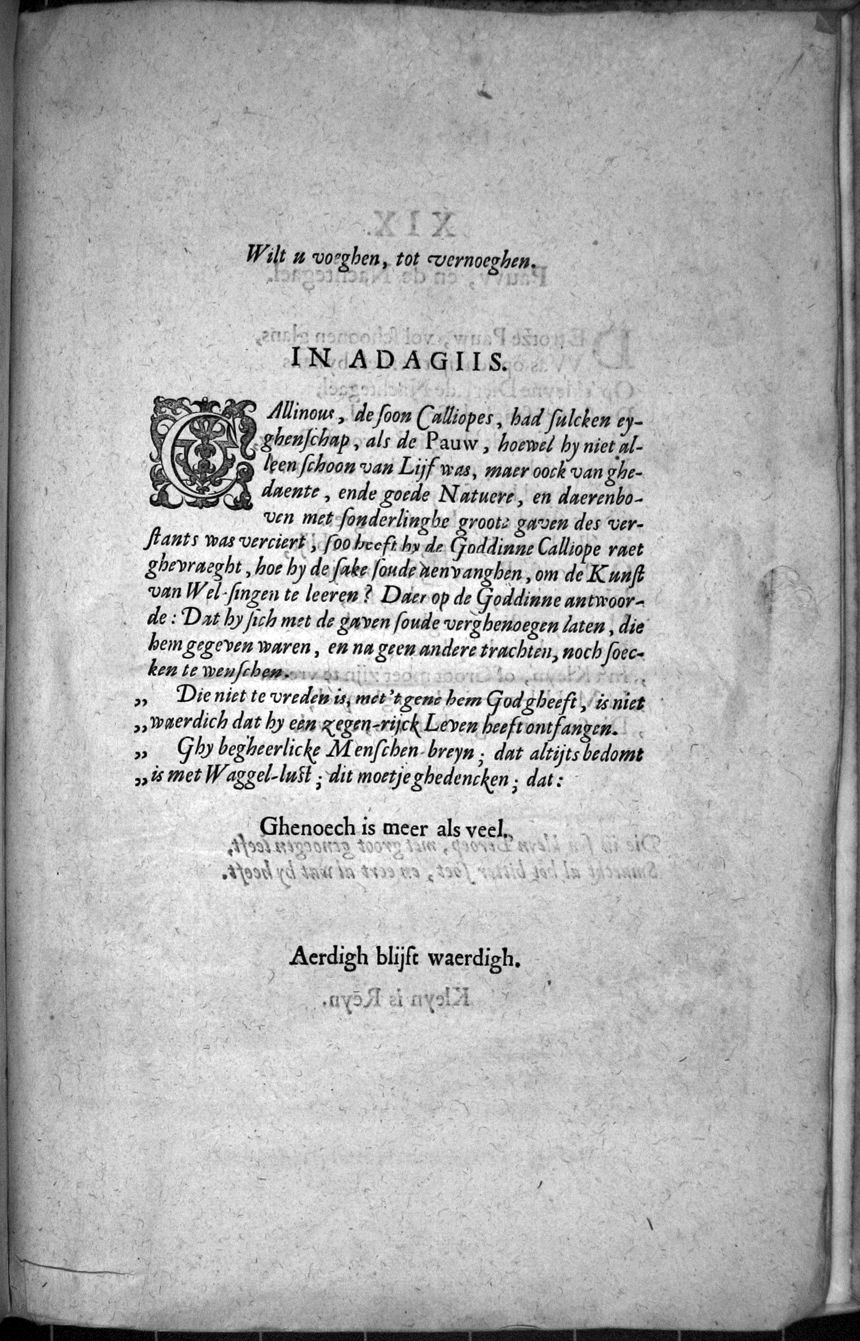 Wilt u voeghen, tot vernoeghen.
IN ADAGIIS.
CAllinous, de soon Calliopes, had sulcken ey-
ghenschap, als de Pauw, hoewel hy niet al-
leen schoon van Lijf was, maer oock van ghe-
daente, ende goede Natuere, en daerenbo-
ven met sonderlinghe groote gaven des ver-
stants was verciert, soo heeft hy de Goddinne Calliope raet
ghevraeght, hoe hy de sake soude aenvanghen, om de Kunst
van Wel-singen te leeren? Daer op de Goddinne antwoor-
de: Dat hy sich met de gaven soude verghenoegen laten, die
hem gegeven waren, en na geen andere trachten, noch soec-
ken te wenschen.
„ Die niet te vreden is, met 't gene hem God gheeft, is niet
„ waerdich dat hy een zegen-rijck Leven heeft ontfangen.
„ Ghy begheerlicke Menschen-breyn; dat altijts bedomt
„ is met Waggel-lust; dit moetje ghedencken; dat:
Ghenoech is meer als veel.
Aerdigh blijft waerdigh.